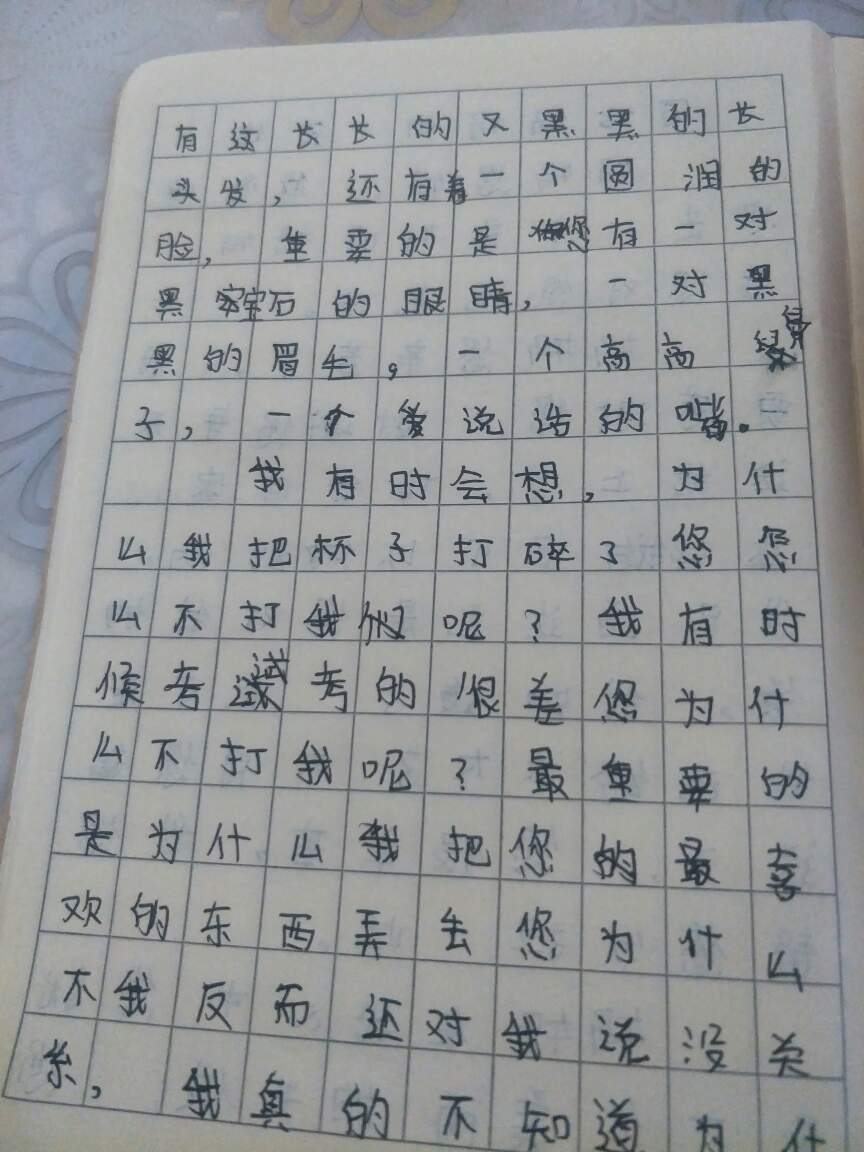 有这长长的又黑黑的长
头发，还有着一个圆润的
脸，重要的是您有一对
黑宝石的眼睛，一对黑
黑的眉毛，一个高高鼻
子，一个爱说话的嘴。
我有时会想，为什
么我把杯子打碎了您怎
么不打我们呢？我有时
候考试考的很差您为什
么不打我呢？最重要的
是为什么我把您的最喜
欢的东西弄丢您为什么
不我反而还对我说没关
系，我真的不知道为什